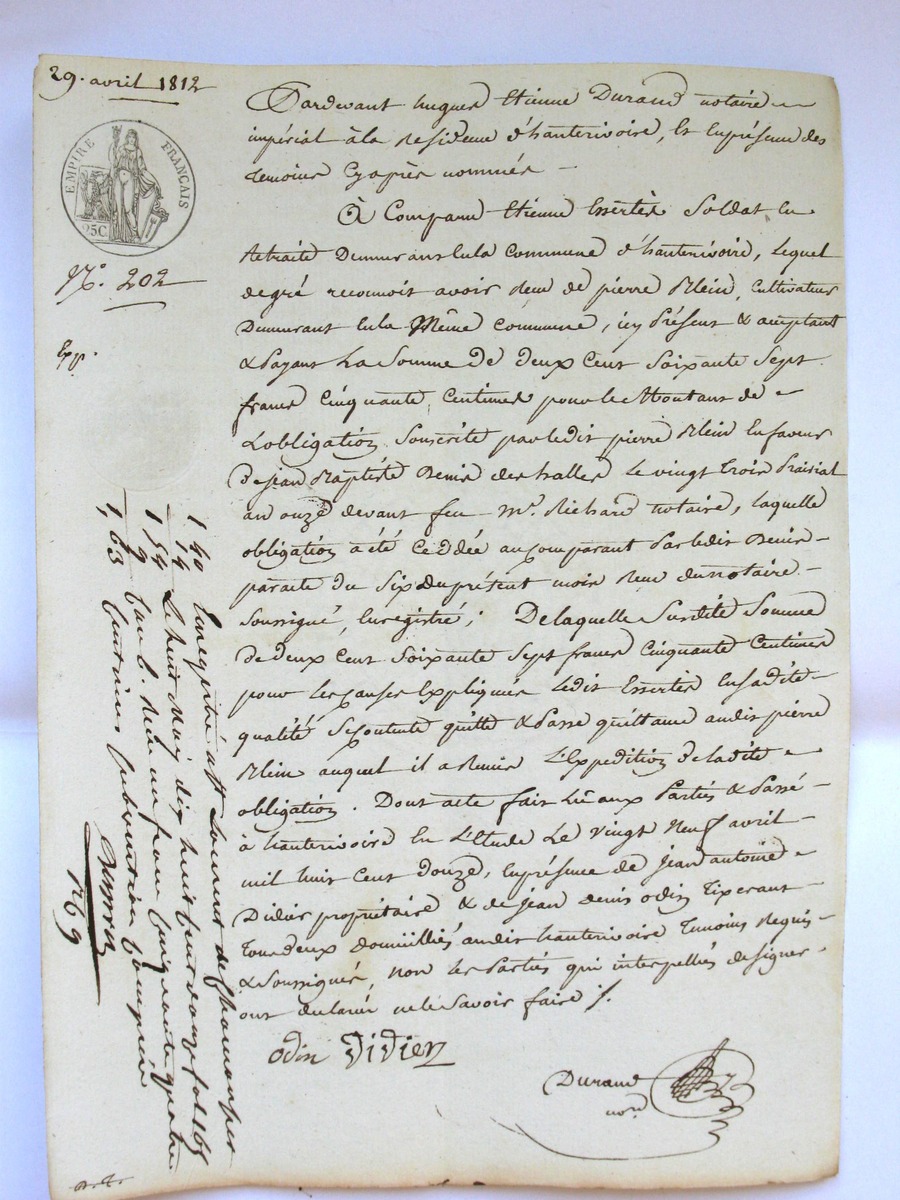 29. avril 1812
EMPIRE FRANÇAIS
25C
N.° 202
Exp.
Pardevant hugues Etienne Durand notaire
impérial à la Residence d'hauterivoire, Et En présence des
temoins Cyaprès nommés
A Comparu Etienne Essertés Soldat En
Retraite Demeurant En la Commune d'hauterivoire, Lequel
de gré reconnoit avoir Reçu de pierre Blein, Cultivateur
Demeurant En la Même Commune, icy présent & acceptant
& payant La Somme de deux Cent Soixante Sept
francs Cinquante Centimes pour le Montant de
L'obligation Souscrite par ledit pierre Blein En faveur
de jean Baptiste Denis des halles Le vingt trois Prairial
an onze devant feu m.e Richard notaire, laquelle
obligation a été Ceddée au Comparant Par ledit Denis
par acte du Six du présent mois Reçu du notaire
Soussigné, Enregistré; De laquelle Susdite Somme
de deux Cent Soixante Sept francs Cinquante Centimes
pour les causes Expliquées Ledit Essertés En sadite
qualité Se Contente quitte & Passe quittance audit pierre
Blein auquel il a Remis L'Expedition de ladite
obligation. Dont acte fait Lû aux Parties & Passé
à hauterivoire En L'Etude Le Vingt Neuf avril
mil huit Cent Douze, En présence de jean antoine
Didier propriétaire & de jean denis odin Tixerant
tous deux Domiciliés audit hauterivoire Temoins Requis
& Soussignés, non les Parties qui interpellées de signer
ont declaré ne le Savoir faire /.
odin Didier
Durand
no.re
1 40 Enregistré à St Laurent de Chamousset
14 Le huit May dix huit cent douze fol 165
1 54 Reçu un franc Cinquante quatre
9
1,63 Centimes subvention Comprise
169